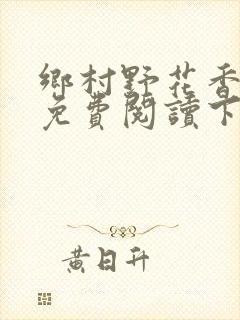 鄉村野花香
免費閱讀下
黃日升